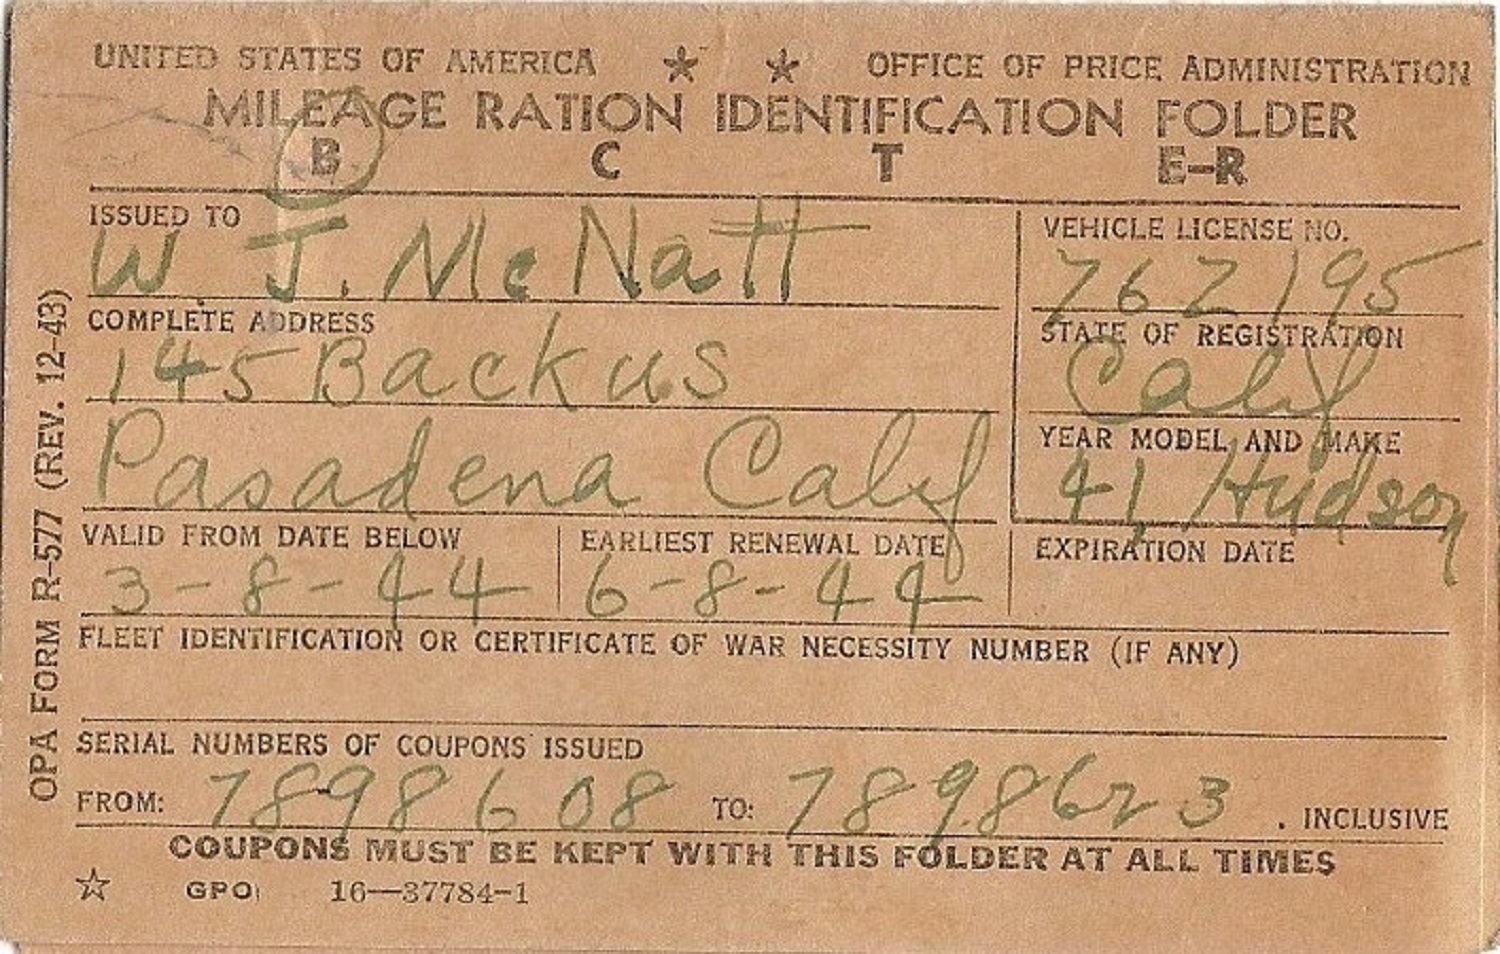 UNITED STATES OF AMERICA ★ ★ OFFICE OF PRICE ADMINISTRATION
MILEAGE RATION IDENTIFICATION FOLDER
B C T E-R
ISSUED TO
W J. McNatt
VEHICLE LICENSE NO.
762195
COMPLETE ADDRESS
145 Backus
Pasadena Calif
STATE OF REGISTRATION
Calif
YEAR MODEL AND MAKE
41, Hudson
VALID FROM DATE BELOW
3-8-44
EARLIEST RENEWAL DATE
6-8-44
EXPIRATION DATE
FLEET IDENTIFICATION OR CERTIFICATE OF WAR NECESSITY NUMBER (IF ANY)
SERIAL NUMBERS OF COUPONS ISSUED
FROM: 7898608 TO: 7898623 . INCLUSIVE
COUPONS MUST BE KEPT WITH THIS FOLDER AT ALL TIMES
☆ GPO 16—37784-1
OPA FORM R-577 (REV. 12-43)